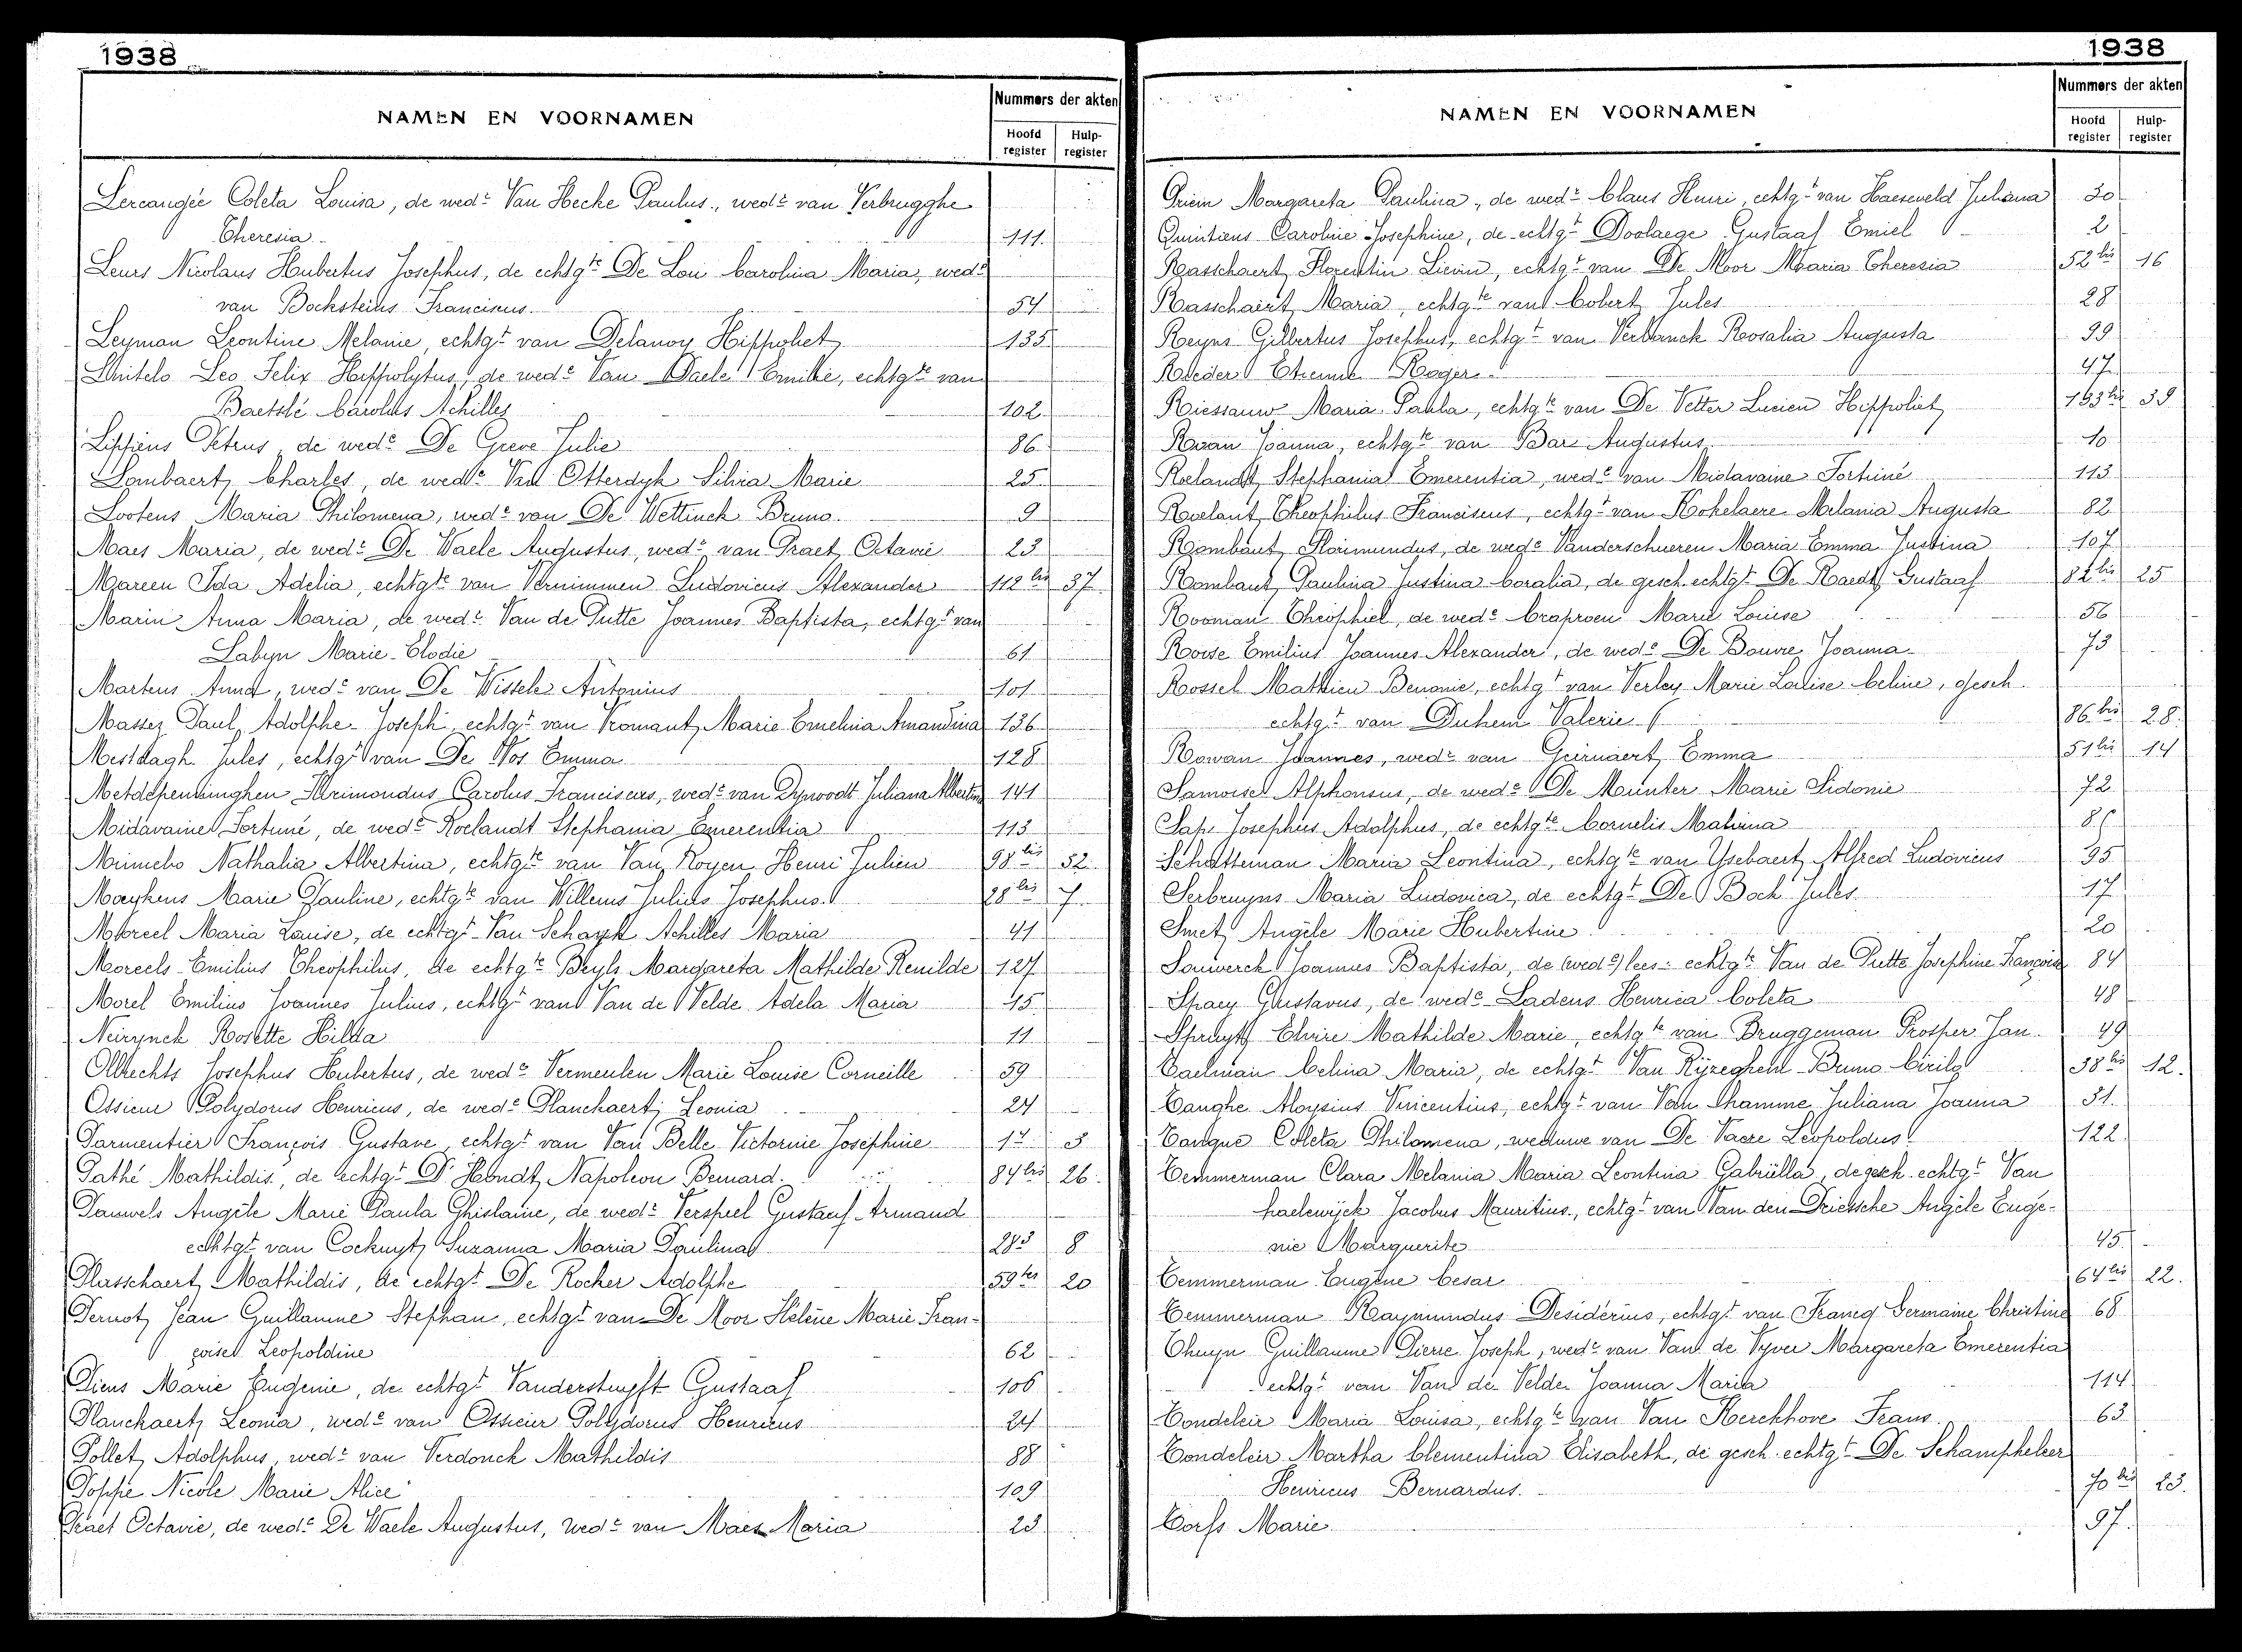 1938
NAMEN EN VOORNAMEN
Nummers der akten
Hoofd register
Hulp- register
Coleta Louisa, de wedᵉ Van Hecke Paulus, wedᵉ van Verbrugghe
Theresia 111.
Leurs Nicolaus Hubertus Josephus, de echtgᵗᵉ De Loi Carolina Maria, wedᵉ
van Bocksteins Franciscus 54
Leyman Leontine Melanie, echtgᵗ van Delanoy Hippoliet 135
Leo Felix Hippolytus, de wedᵉ Van Daele Emilie, echtgᵗᵉ van
Baetslé Carolus Achilles 102
Lippens Petrus, de wedᵉ De Greve Julie 86
Lombaert Charles, de wedᵉ Van Otterdyk Silvia Marie 25
Lootens Maria Philomena, wedᵉ van De Wettinck Bruno 9
Maes Maria, de wedᵉ De Waele Augustus, wedᵉ van Praet Octavie 23
Mareen Ida Adelia, echtgᵗᵉ van Vernimmen Ludovicus Alexander 112 bis 37
Marin Anna Maria, de wedᵉ Van de Putte Joannes Baptista, echtgᵗ van
Labyn Marie-Elodie 61
Martens Anna, wedᵉ van De Wissele Antonius 101
Massez Paul Adolphe Joseph, echtgᵗ van Vromant Marie Emelina Amandina 136
Mestdagh Jules, echtgᵗ van De Vos Emma 128
Metdepenninghen Carolus Franciscus, wedᵉ van Juliana Albertina 141
Midavaine Fortuné, de wedᵉ Roelandt Stephania Emerentia 113
Minnebo Nathalia Albertina, echtgᵗᵉ van Van Royen Henri Julien 98 bis 32
Moeykens Marie Pauline, echtgᵗᵉ van Willems Julius Josephus 28 bis 7
Moreel Maria Louise, de echtgᵗ Van Schayck Achilles Maria 41
Moreels Emilius Theophilus, de echtgᵗᵉ Beyls Margareta Mathilde Renilde 127
Morel Emilius Joannes Julius, echtgᵗ van Van de Velde Adela Maria 15
Neirynck Rosette Hilda 11
Olbrechts Josephus Hubertus, de wedᵉ Vermeulen Marie Louise Corneille 59
Ossieur Polydorus Henricus, de wedᵉ Planchaert Leonia 24
Parmentier François Gustave, echtgᵗ van Van Belle Victorine Josephine 3
Pathé Mathildis, de echtgᵗ D'Hondt Napoleon Bernard. 84 bis 26
Pauwels Angèle Marie Paula Ghislaine, de wedᵉ Verspeel Gustaaf Armand
echtgᵗ van Cockuyt Suzanna Maria Paulina 8
Plasschaert Mathildis, de echtgᵗ De Rocker Adolphe 59 20
Pernot Jean Guillaume Stephan, echtgᵗ van De Moor Hélène Marie Fran-
çoise Leopoldine 62
Piens Marie Eugenie, de echtgᵗ Vanderstuyft Gustaaf 106
Planchaert Leonia, wedᵉ van Ossieur Polydorus Henricus 24
Pollet Adolphus, wedᵉ van Verdonck Mathildis 88
Poppe Nicole Marie Alice 109
Praet Octavie, de wedᵉ De Waele Augustus, wedᵉ van Maes Maria 23
1938
NAMEN EN VOORNAMEN
Nummers der akten
Hoofd register
Hulp- register
Margareta Paulina, de wedᵉ Claus Henri, echtgᵗ van Haeseveld Juliana 30
Quintiens Caroline Josephine, de echtgᵗ Doolaege Gustaaf Emiel 2
Rasschaert Florentin Lievin, echtgᵗ van De Moor Maria Theresia 52 bis 16
Rasschaert Maria, echtgᵗᵉ van Cobert Jules 28
Reyns Gilbertus Josephus, echtgᵗ van Verbrnck Rosalia Augusta 99
Reeder Etienne Roger 47
Riessauw Maria Paula, echtgᵗᵉ van De Vetter Lucien Hippoliet 39
Joanna, echtgᵗᵉ van Bar Augustus 10
Roelandt Stephania Emerentia, wedᵉ van Midavaine Fortuné 113
Roelant Theophilus Franciscus, echtgᵗ van Kokelaere Melania Augusta 82
Rombaut Florimundus, de wedᵉ Vanderschueren Maria Emma Justina 107
Rombaut Paulina Justina Coralia, de gesch. echtgᵗ De Raedt Gustaaf 82 bis 25
Rooman Theophiel, de wedᵉ Marie Louise 56
Roose Emilius Joannes Alexander, de wedᵉ De Bouvre Joanna 73
Rossel Mathieu Benonie, echtgᵗ van Verley Marie Louise Celine, gesch.
echtgᵗ van Duhem Valerie 86 bis 28
Rowan Joannes, wedᵉ van Geirnaert Emma 51 bis 14
Samoisel Alphonsus, de wedᵉ De Munter Marie Sidonie 72
Sap Josephus Adolphus, de echtgᵗᵉ Cornelis Malvina
Schatteman Maria Leontina, echtgᵗᵉ van Ysebaert Alfred Ludovicus 95
Serbruyns Maria Ludovica, de echtgᵗ De Bock Jules 17
Smet Angèle Marie Hubertine 20
Souwerck Joannes Baptista, de (wedᵉ) lees: echtgᵗᵉ Van de Putte Josephine Françoise 84
Spaey Gustavus, de wedᵉ Ladens Henrica Coleta 48
Spruyt Elvire Mathilde Marie, echtgᵗᵉ van Bruggeman Prosper Jan 49
Taelman Celina Maria, de echtgᵗ Van Rijzeghem Bruno Cirilo 38 bis 12.
Tanghe Aloysius Vincentius, echtgᵗ van Van Damme Juliana Joanna 31.
Tanque Coleta Philomena, weduwe van De Vaere Leopoldus 122
Temmerman Clara Melania Maria Leontina Gabriëlla, de gesch. echtgᵗ Van
haelewijck Jacobus Mauritius, echtgᵗ van Van den Driessche Angèle Euge-
nie Marguerite 45
Temmerman Eugène Cesar 64 bis 22.
Temmerman Raymundus Desiderius, echtgᵗ van Francq Germaine Christine 68
Thuyn Guillaume Pierre Joseph, wedᵉ van Van de Vyver Margareta Emerentia
echtgᵗ van Van de Velde Joanna Maria 114
Tondeleir Maria Louisa, echtgᵗᵉ van Van Kerckhove Frans 63
Tondeleir Martha Clementina Elisabeth, de gesch. echtgᵗ De Schampheleer
Henricus Bernardus. 70 bis 23.
Torfs Marie 97.